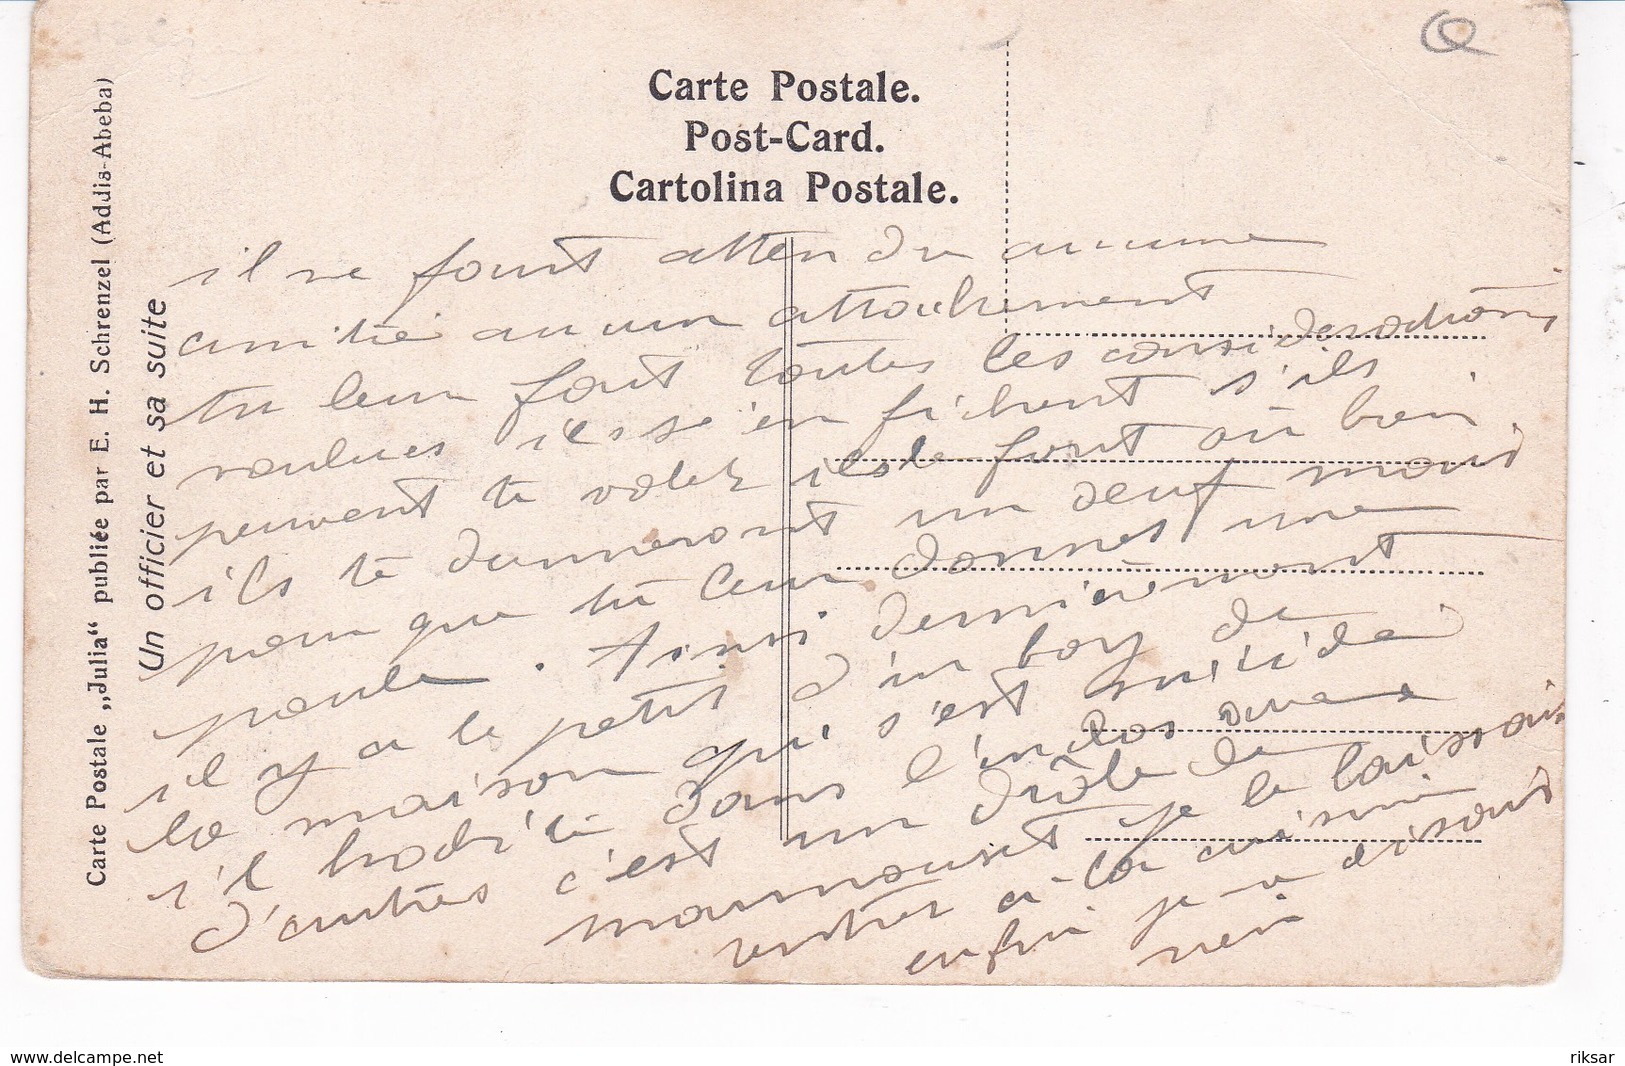 Carte Postale.
Post-Card.
Cartolina Postale.
Carte Postale „Julia“ publiée par E. H. Schrenzel (Addis-Abeba)
Un officier et sa suite
il ne faut attendre aucune
amitié aucun attachement
tu leur fait toutes les considerations
voulues ils se'en fichent s'ils
peuvent te voler ils le font où bien
ils te donneront un oeuf mais
pour que tu leur donnes une
poule. Ainsi dernièrement
il y a le petit d'un boy de
la maison qui s'est suicidé
s'il
d'autres c'est un drôle de
mamouset je le laissais
entrer à la cuisine
enfin je a disais
rien
delcampe.net
riksar